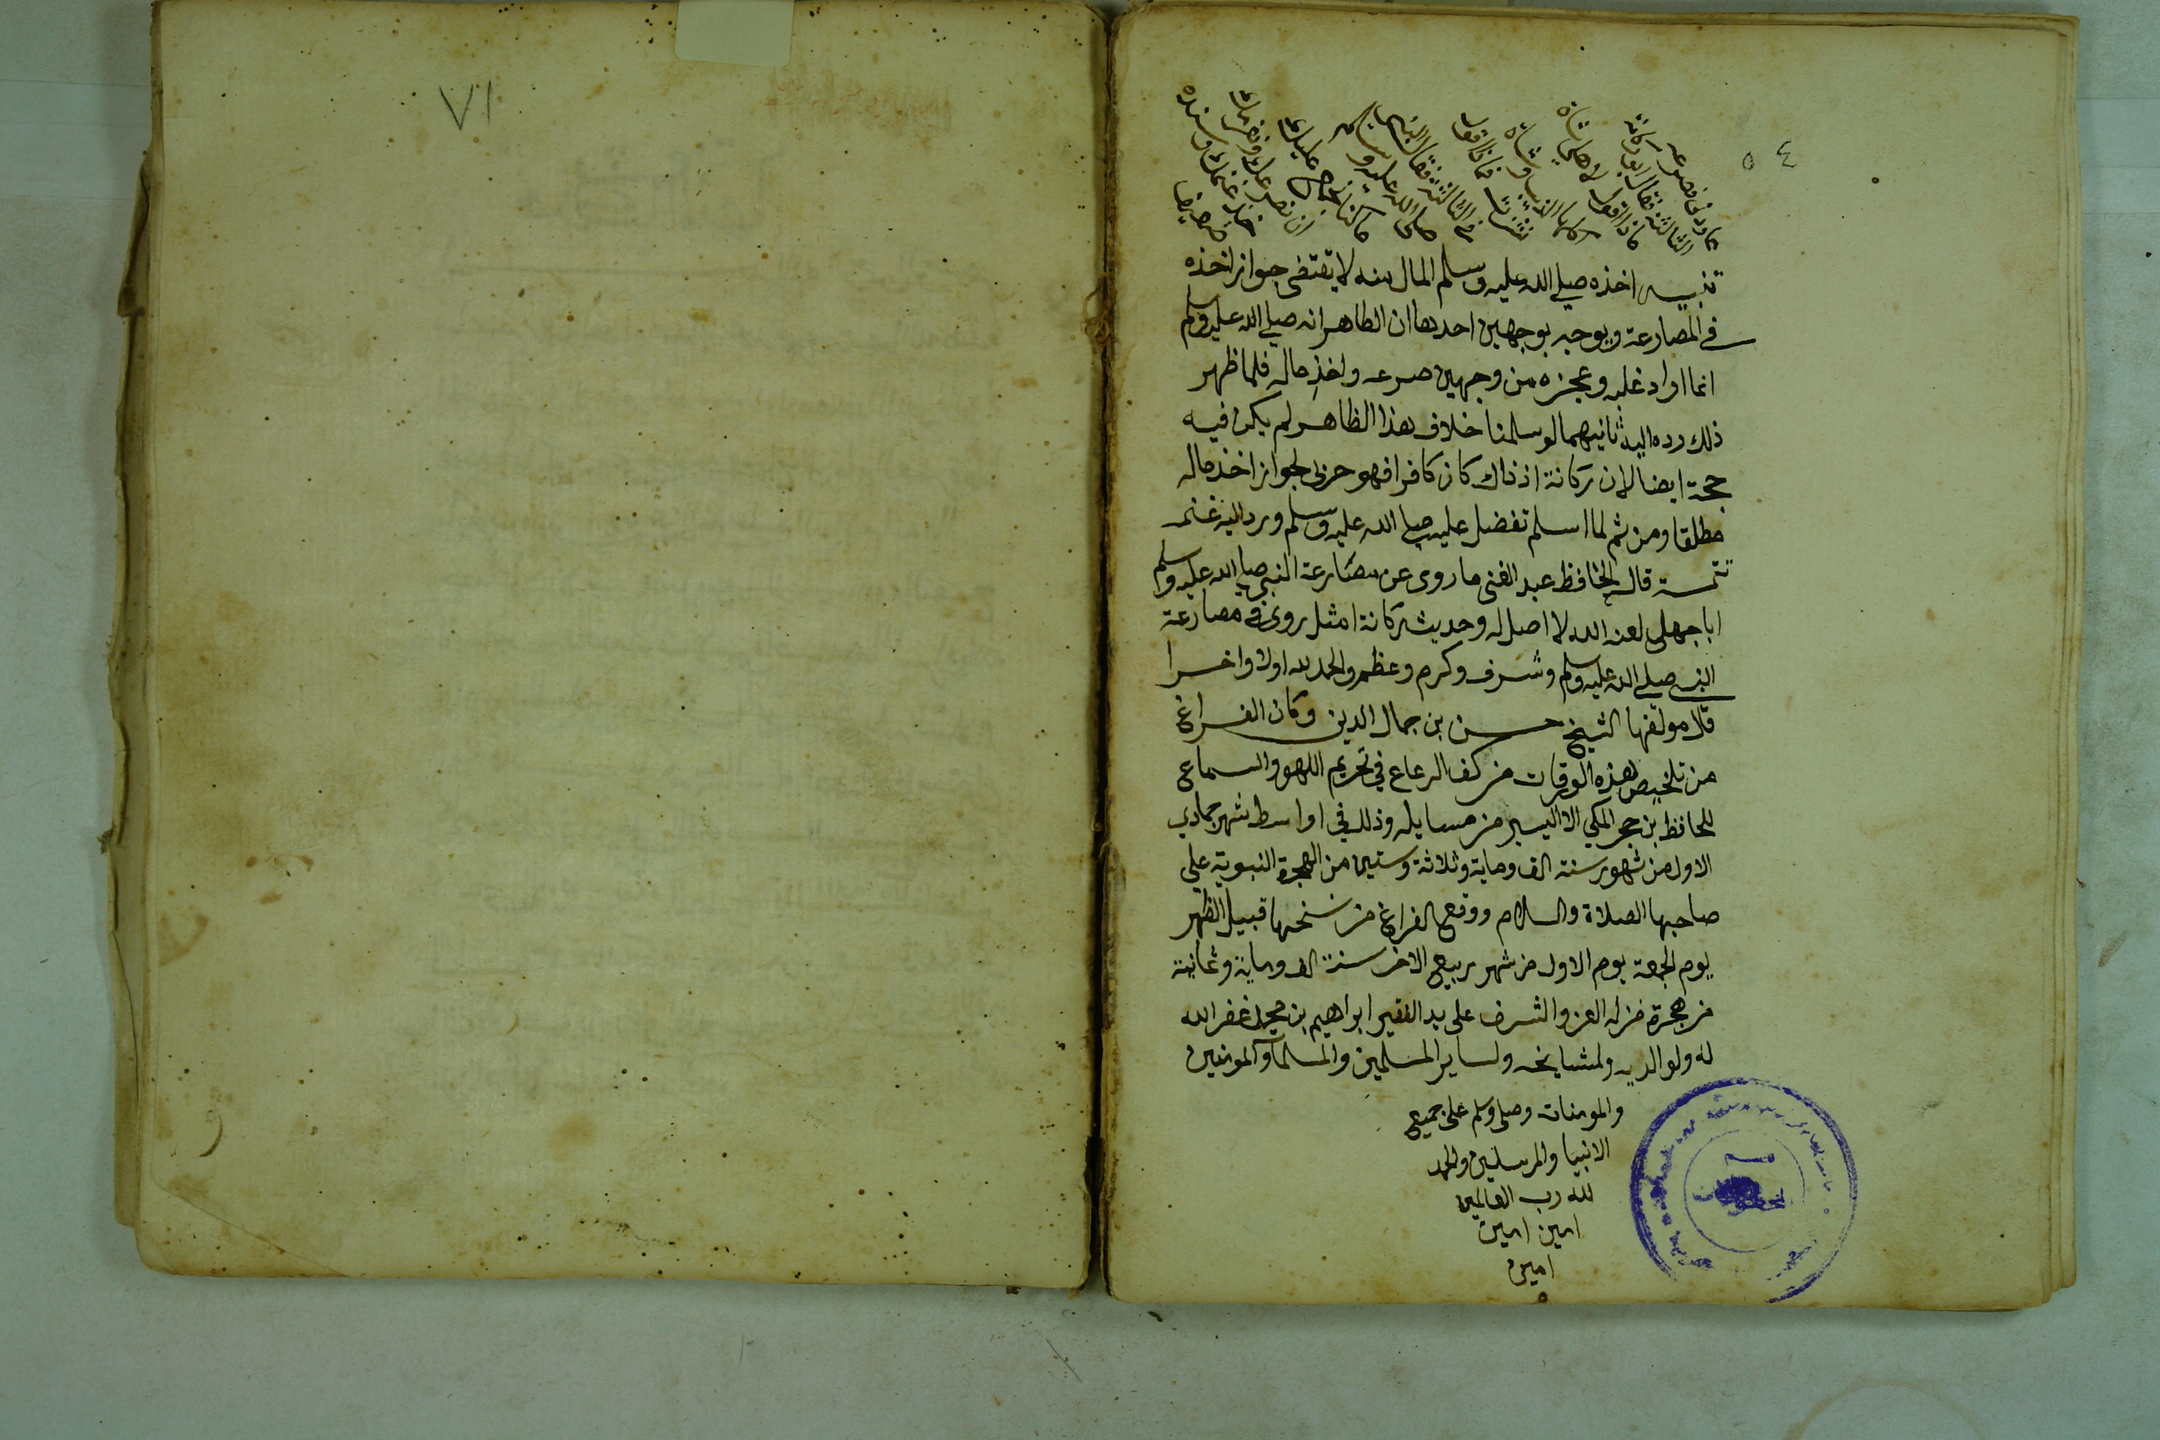 ٥٤
عاودني فصرعه
الثالثة فقال ابو ركانة
ماذا اقول لاهلي شاة
اكلها الذيب وشاة
نشزت فماذا اقول
في الثالثة فقال النبي
صلى الله عليه وسلم
ما كنا لنجمع عليك
ان نصرعك ونغرمك
خذ غنمك وسنده
ضعيف
تنبيه اخذه صلى الله عليه وسلم المال منه لا يقتضي جواز اخذه
في المصارعة ويوجه بوجهين احدهما ان الظاهر انه صلى الله عليه وسلم
انما اراد غلبه وعجزه من وجهين صرعه واخذ ماله فلما ظهر
ذلك رده اليه ثانيهما لو سلمنا خلاف هذا الظاهر لم يكن فيه
حجة ايضا لان ركانة اذ ذاك كان كافرا فهو حربي لجواز اخذ ماله
مطلقا ومن ثم لما اسلم تفضل عليه صلى الله عليه وسلم ورد اليه غنمه
تتمة قال الحافظ عبد الغني ما روي عن مصارعة النبي صلى الله عليه وسلم
ابا جهل لعنه الله لا اصل له وحديث ركانة امثل روي في مصارعة
النبي صلى الله عليه وسلم وشرف وكرم وعظم والحمد لله اولا واخرا
قال مولفها الشيخ حسن بن جمال الدين وكان الفراغ
من تلخيص هذه الورقات من كف الرعاع في تحريم اللهو والسماع
للحافظ بن حجر المكي الا اليسير من مسايله وذلك في اواسط شهر جمادي
الاول من شهور سنة الف وماية وثلاثة وستين من الهجرة النبوية على
صاحبها الصلاة والسلام ووقع الفراغ من نسخها قبيل الظهر
يوم الجمعة يوم الاول من شهر ربيع الاخر سنة الف وماية وثمانية
من هجرة من له العز والشرف على يد الفقير ابراهيم بن محمد غفر الله
له ولوالديه ولمشايخه ولساير المسلمين والمسلمات والمومنين
والمومنات وصلى وسلم على جميع
الانبيا والمرسلين والحمد
لله رب العالمين
امين امين
امين
قسم
المخطوطات
٧١